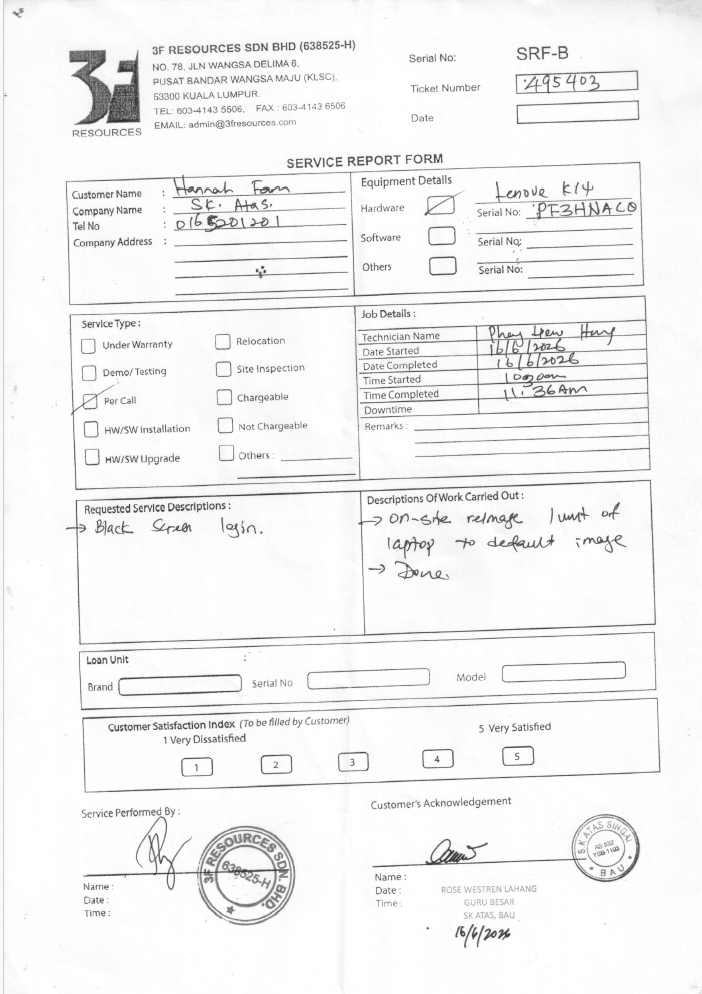 3F RESOURCES SDN BHD (638525-H)
NO. 78, JLN WANGSA DELIMA 6,
PUSAT BANDAR WANGSA MAJU (KLSC),
53300 KUALA LUMPUR.
TEL: 603-4143 5506, FAX : 603-4143 6506
EMAIL: admin@3fresources.com
3F
RESOURCES
Serial No: SRF-B
Ticket Number 495403
Date
SERVICE REPORT FORM
Customer Name : Hannah
Company Name : SK. Atas.
Tel No : 0165201201
Company Address :
Equipment Details
Lenovo K14
Hardware Serial No: PF3HNACQ
Software Serial No:
Others Serial No:
Service Type :
Under Warranty
Relocation
Demo/Testing
Site Inspection
Per Call
Chargeable
HW/SW Installation
Not Chargeable
HW/SW Upgrade
Others :
Job Details :
Technician Name
Date Started 16/6/2026
Date Completed 16/6/2026
Time Started
Time Completed 11:36Am
Downtime
Remarks :
Requested Service Descriptions :
→ Black Screen login.
Descriptions Of Work Carried Out :
→ On-site reimage 1 unit of
laptop to default image
→ Done.
Loan Unit
Brand
Serial No
Model
Customer Satisfaction Index (To be filled by Customer)
1 Very Dissatisfied 5 Very Satisfied
1 2 3 4 5
Service Performed By :
3F RESOURCES SDN. BHD.
638525-H
Name :
Date :
Time :
Customer's Acknowledgement
BAU
Name :
Date : ROSE WESTREN LAHANG
Time : GURU BESAR
SK ATAS, BAU
16/6/2026